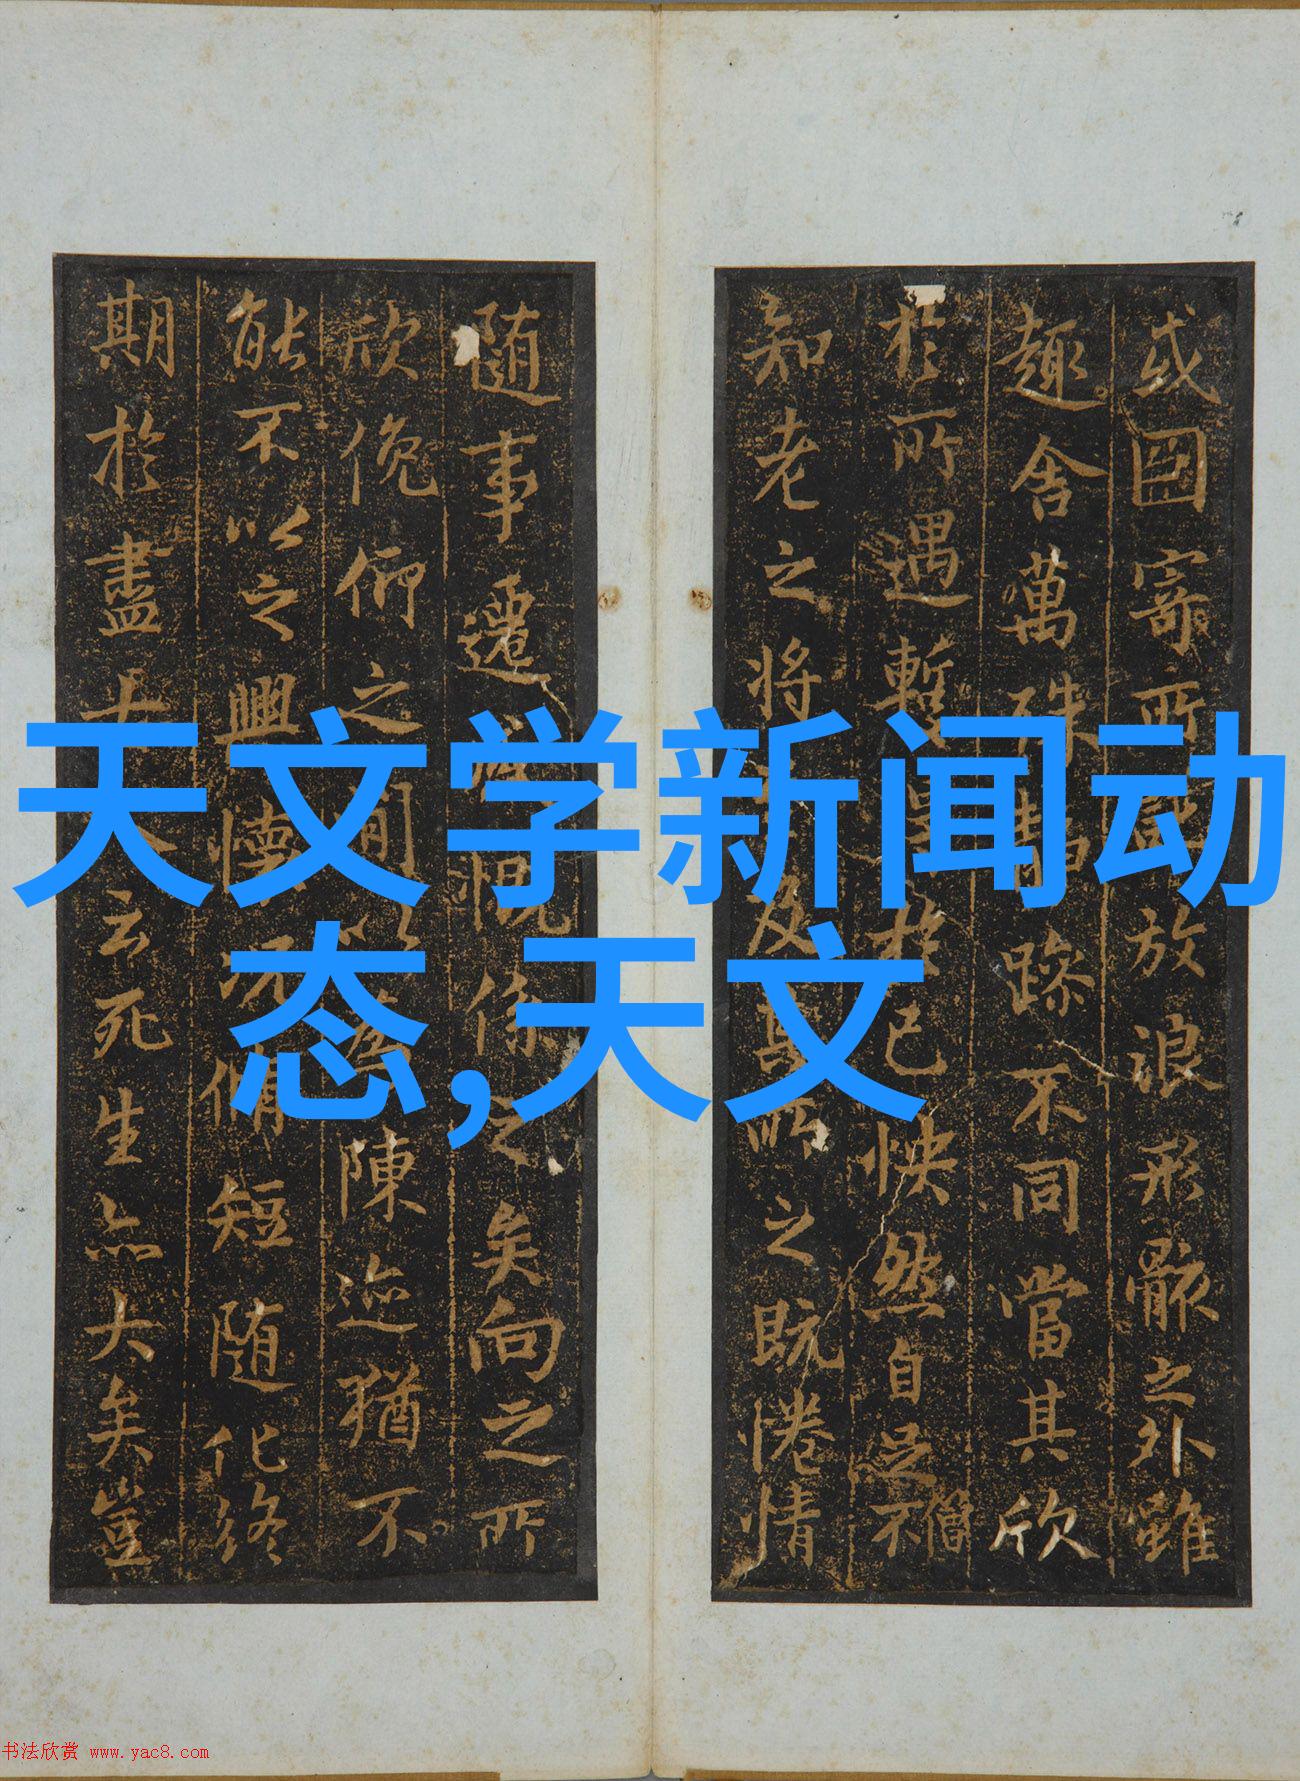 天文学新闻动
态,天文
或因寄所放浪形骸之外雖
趣舍萬殊躁不同當其欣
於所遇暫於己怏然自足不僧
知老之將及其所之既惓情
隨事遷慨係之矣向之所
欣俛仰之間以為陳迹猶不
能不以之興懷況脩短隨化終
期於盡云死生亦大矣豈
书法欣赏 www.yac8.com